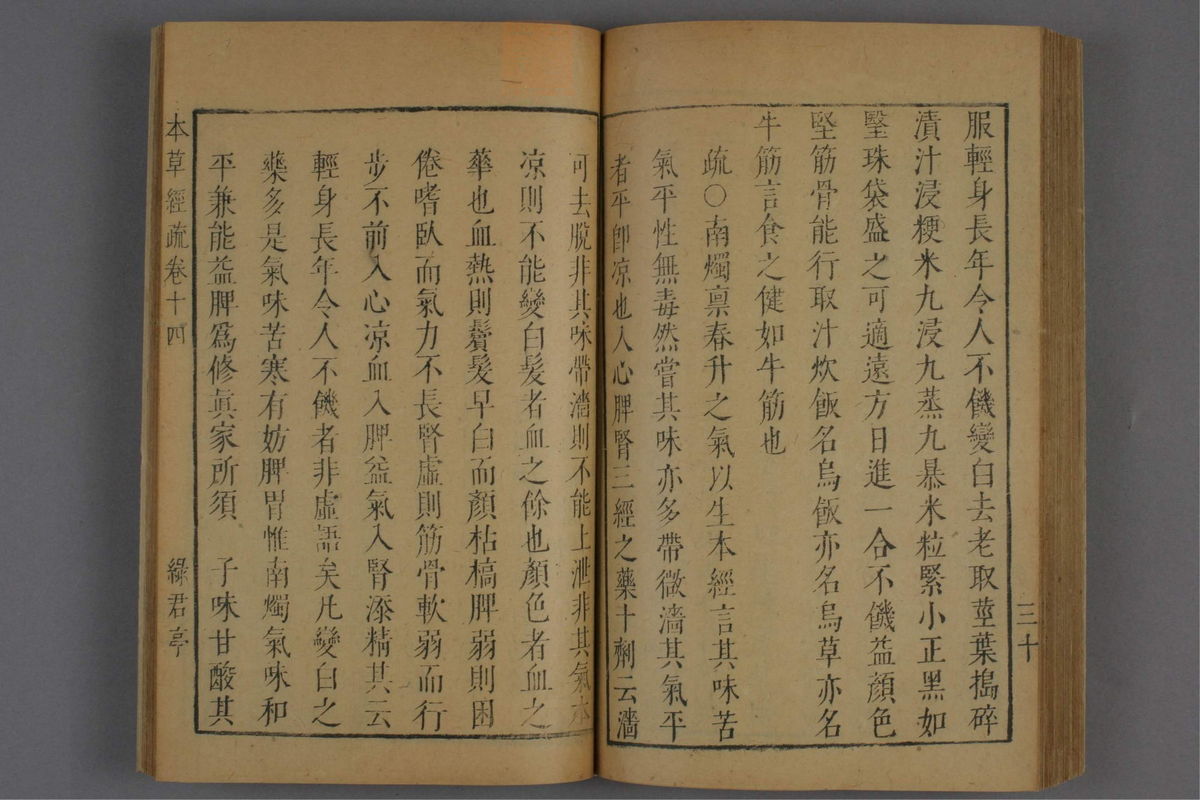 服輕身長年令人不饑變白去老取莖葉搗碎
漬汁浸粳米九浸九蒸九暴米粒緊小正黑如
瑿珠袋盛之可適遠方日進一合不饑益顏色
堅筋骨能行取汁炊飯名烏飯亦名烏草亦名
牛筋言食之健如牛筋也
疏○南燭禀春升之氣以生本經言其味苦
氣平性無毒然嘗其味亦多帶微濇其氣平
者平卽凉也入心脾腎三經之藥十劑云濇
三十
可去脫非其味帶濇則不能上泄非其氣本
凉則不能變白髮者血之餘也顏色者血之
華也血熱則鬚髮早白而顏枯槁脾弱則困
倦嗜臥而氣力不長腎虛則筋骨軟弱而行
步不前入心凉血入脾益氣入腎添精其云
輕身長年令人不饑者非虛語矣凡變白之
藥多是氣味苦寒有妨脾胃惟南燭氣味和
平兼能益脾爲修眞家所須　子味甘酸其
本草經疏卷十四
綠君亭